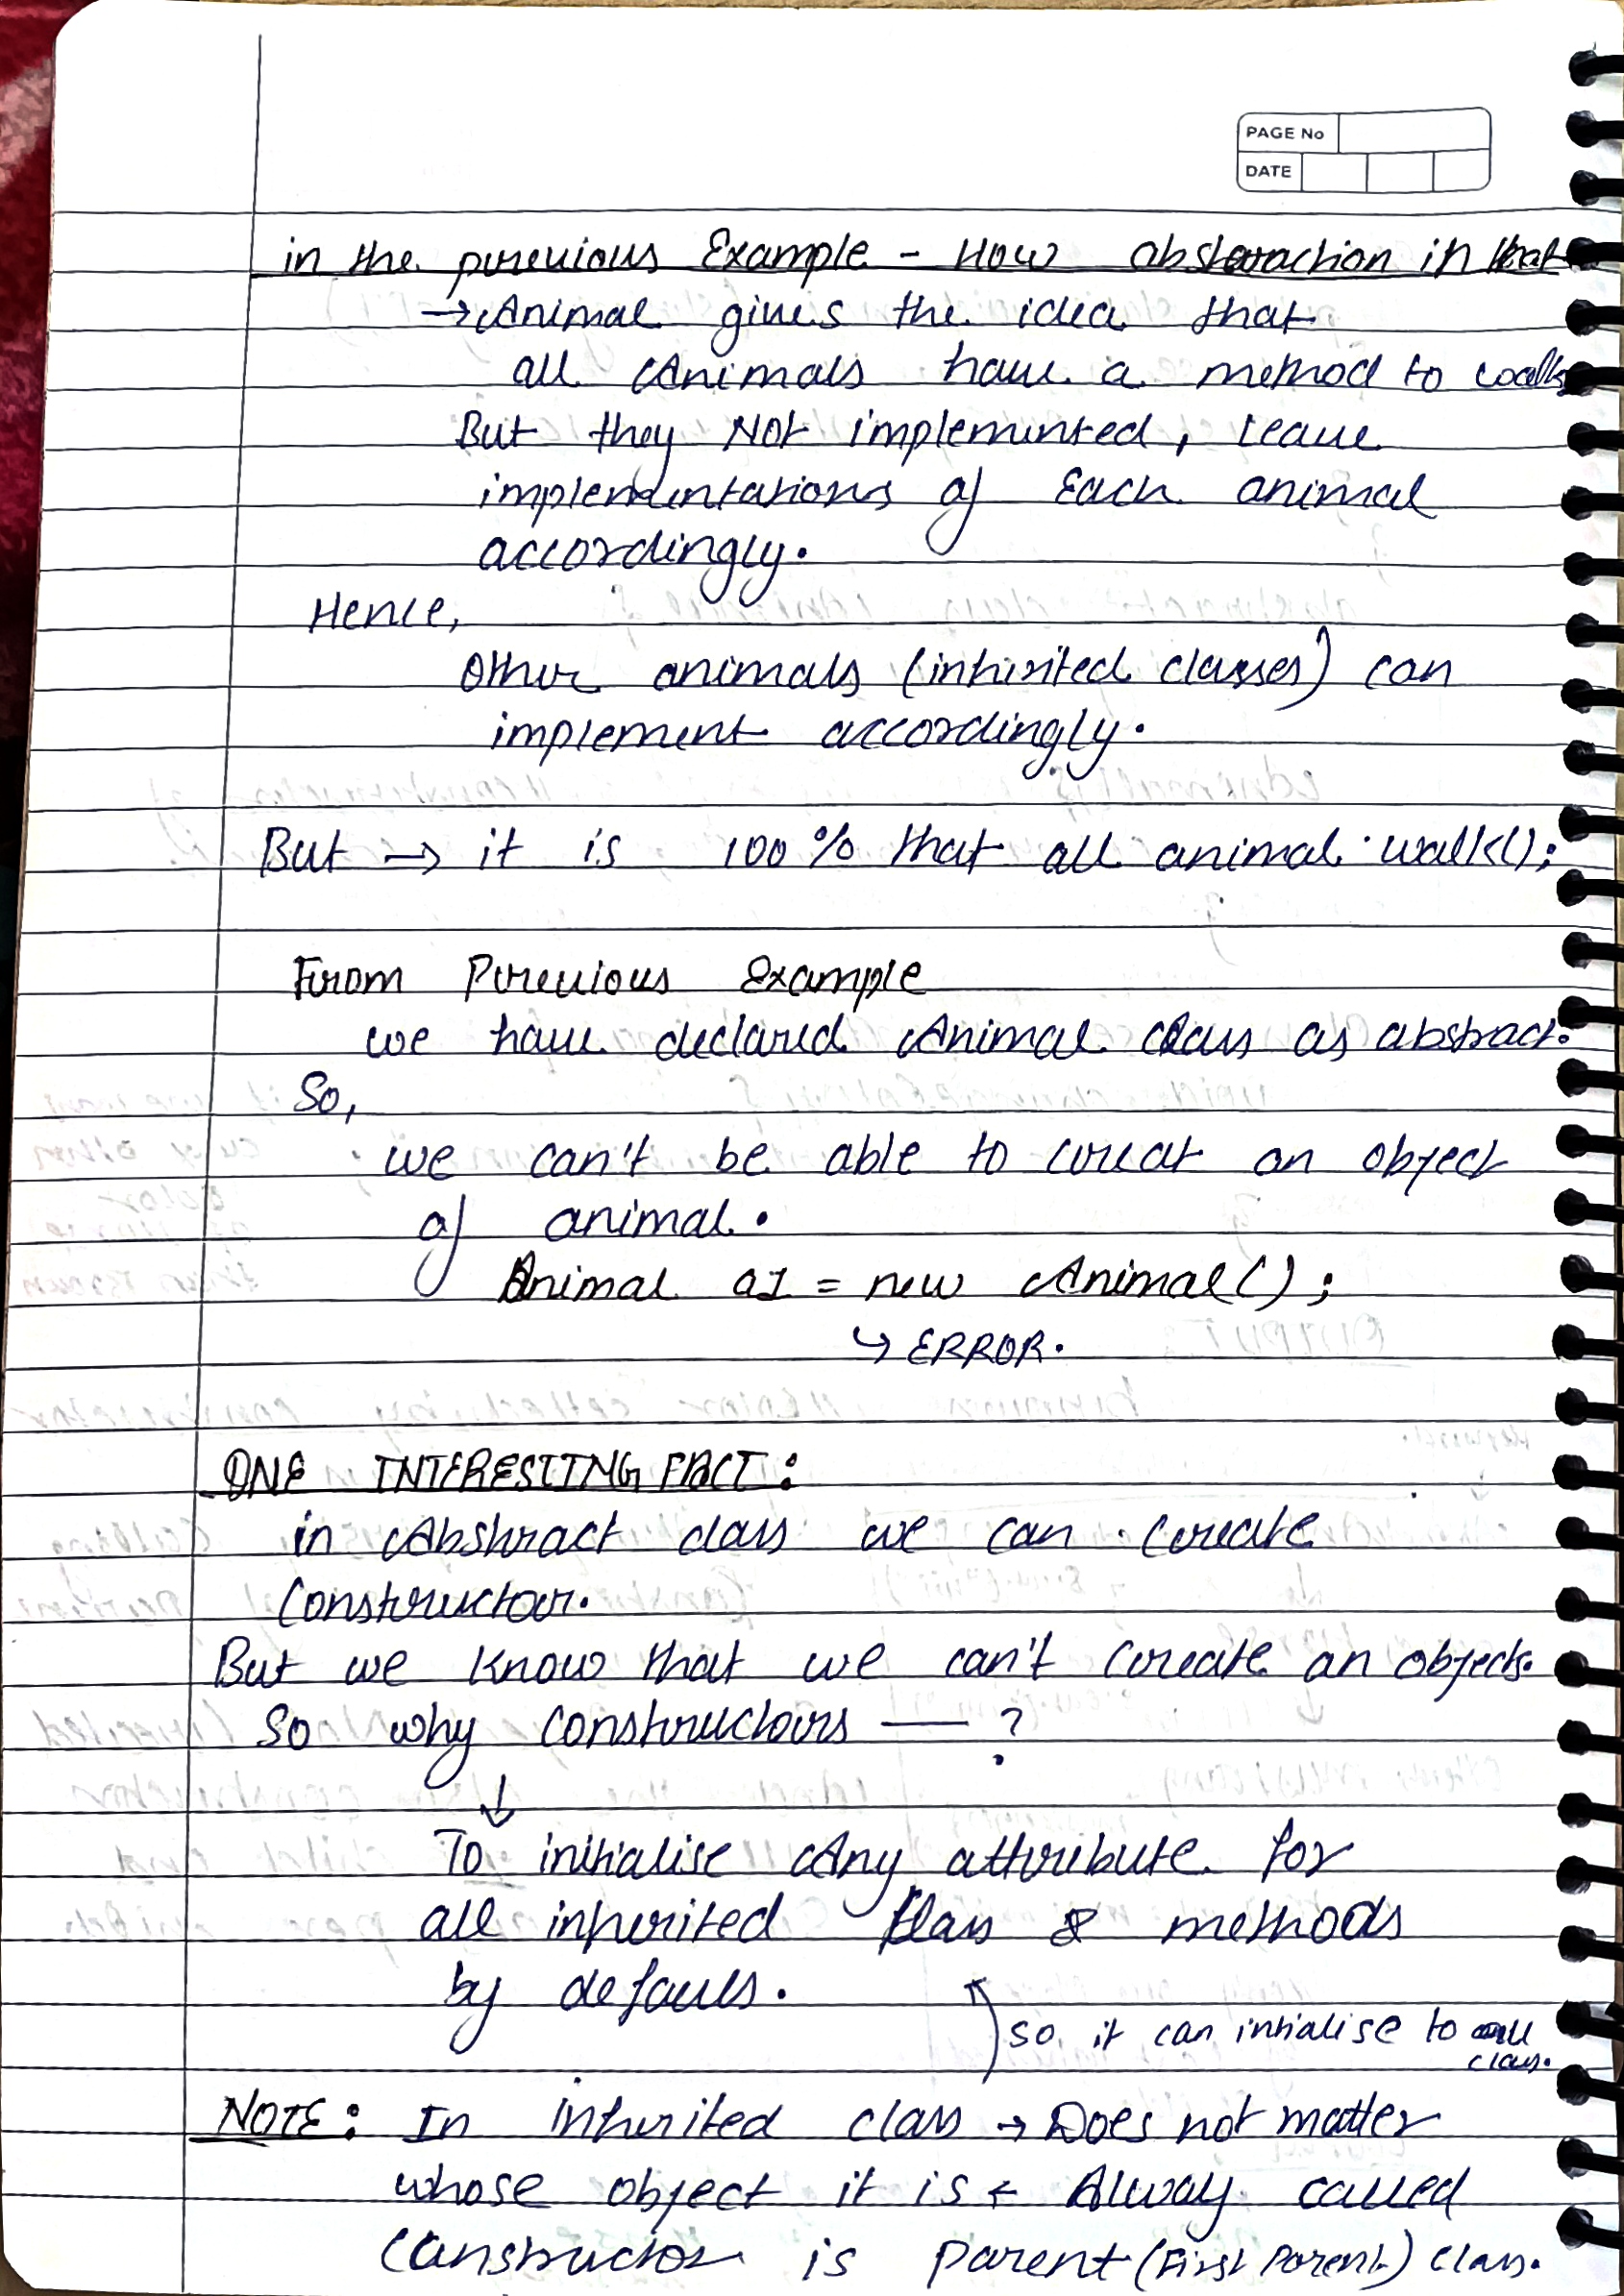 PAGE No
DATE
in the previous Example - How abstraction in that
→ Animal gives the idea that
all Animals have a method to walk
But they Not implemented, leave
implementations of Each animal
accordingly.
Hence,
Other animals (inherited classes) can
implement accordingly.
But → it is 100% that all animal · walk();
From Previous Example
we have declared Animal class as abstract.
So,
we can't be able to creat an object
of animal.
Animal a1 = new Animal();
↳ ERROR.
ONE INTERESTING FACT:
in Abstract class we can create
Constructor.
But we know that we can't create an object.
So why constructors — ?
↓
To initialise Any attribute for
all inherited class & methods
by default.
so it can intialise to all
class.
NOTE: In inherited class → Does not matter
whose object it is ← Alway called
Constructor is parent (First Parent) class.